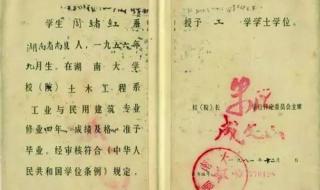 学生 周绪红 系
湖南省南县人，一九五六年
九月生，在湖南大学
校（院）土木工程系
工业与民用建筑专业
修业四年，成绩及格，准予
毕业，经审核符合《中华人
民共和国学位条例》规定，
授予 工 学学士学位。
校（院）长
学位评定委员会主席
一九八一年十二月 日